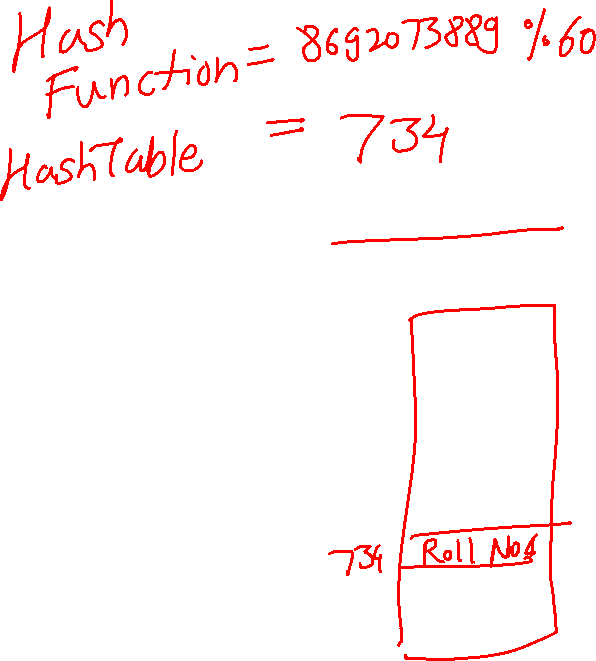 Hash
Function = 8692073889 % 60
HashTable = 734
734 Roll No1